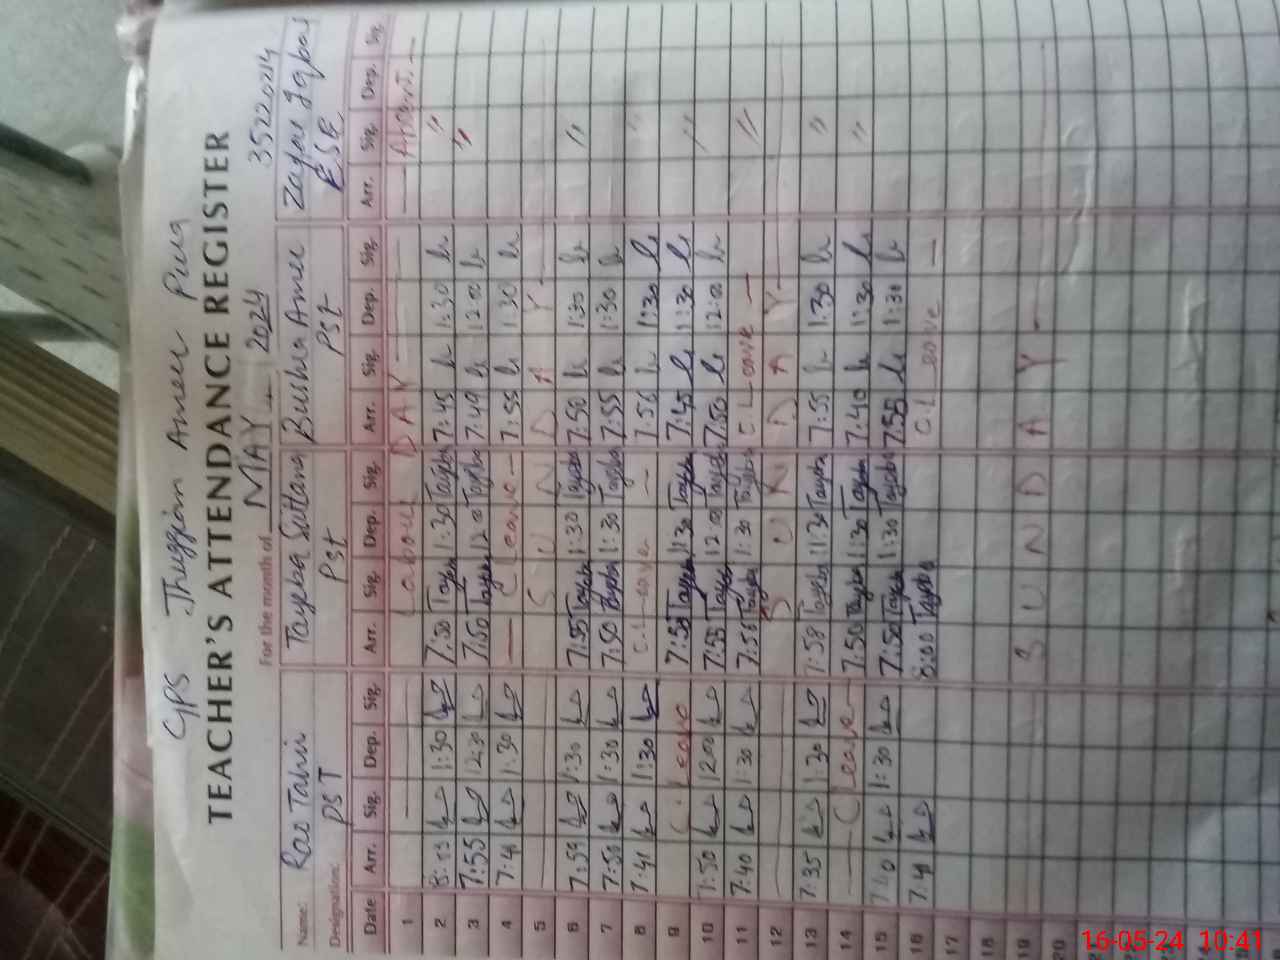 GPS Jhuggian Ameer Pura
TEACHER'S ATTENDANCE REGISTER 35220214
For the month of MAY - 2024
Name: Rao Tahir Tayeba Sultana Bushra Ameer Zafar Iqbal
Designation: PST PST PST ESE
Date Arr. Sig. Dep. Sig. Arr. Sig. Dep. Sig. Arr. Sig. Dep. Sig. Arr. Sig. Dep. Sig.
1 Labour DAY Absent
2 1:30 7:50 Tayeba 1:30 Tayeba 7:45 1:30 "
3 7:55 12:30 7:50 Tayeba 12:00 Tayeba 7:49 12:00 "
4 7:41 1:30 C Leave 7:55 1:30
5 S U N D A Y
6 7:59 1:30 7:55 Tayeba 1:30 Tayeba 7:50 1:30 "
7 7:50 1:30 7:50 Tayeba 1:30 Tayeba 7:55 1:30
8 7:41 1:30 C.L-eave 7:56 1:30 "
9 C. Leave 7:50 Tayeba 1:30 Tayeba 7:45 1:30
10 7:50 12:00 7:55 Tayeba 12:00 Tayeba 7:50 12:00 "
11 7:40 1:30 7:56 Tayeba 1:30 Tayeba C.Leave "
12 S U N D A Y
13 7:35 1:30 7:58 Tayeba 1:30 Tayeba 7:55 1:30 "
14 C Leave 7:50 Tayeba 1:30 Tayeba 7:40 1:30 "
15 1:30 7:50 Tayeba 1:30 Tayeba 7:50 1:30
16 7:41 8:00 Tayeba C.L eave
17
18
19 S U N D A Y
20
16-05-24 10:41